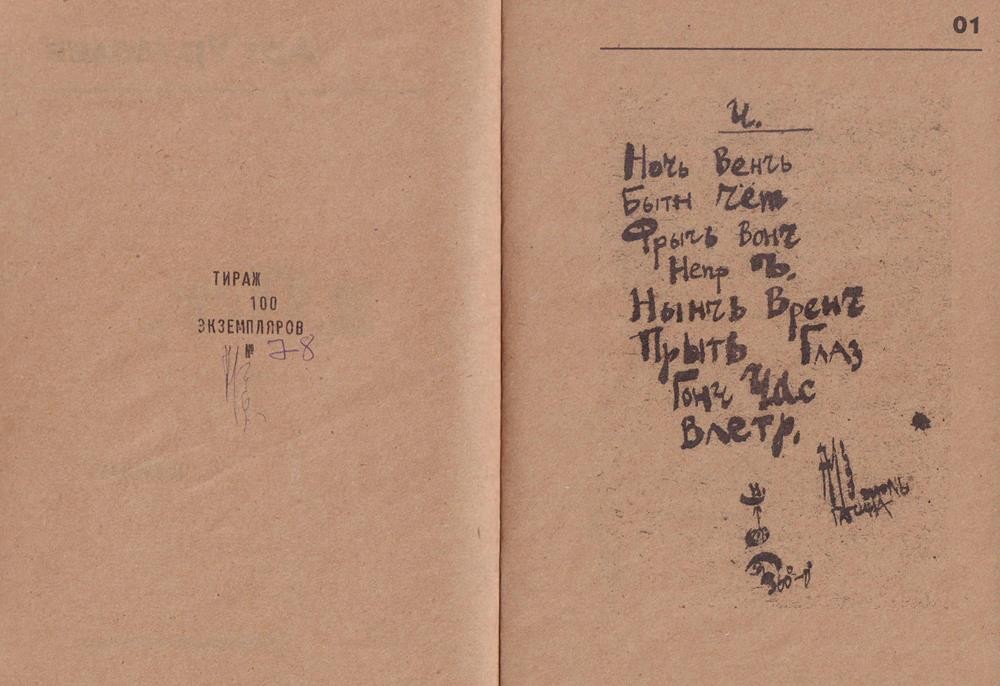 ТИРАЖ
100
ЭКЗЕМПЛЯРОВ
№ 78
01
Ч.
Ночь Венчь
Бытн Чёт
Фрычъ Вонч
Непр Ъ.
Нынчъ Вренч
Прыть Глаз
Гонч Час
Влетр.
360°